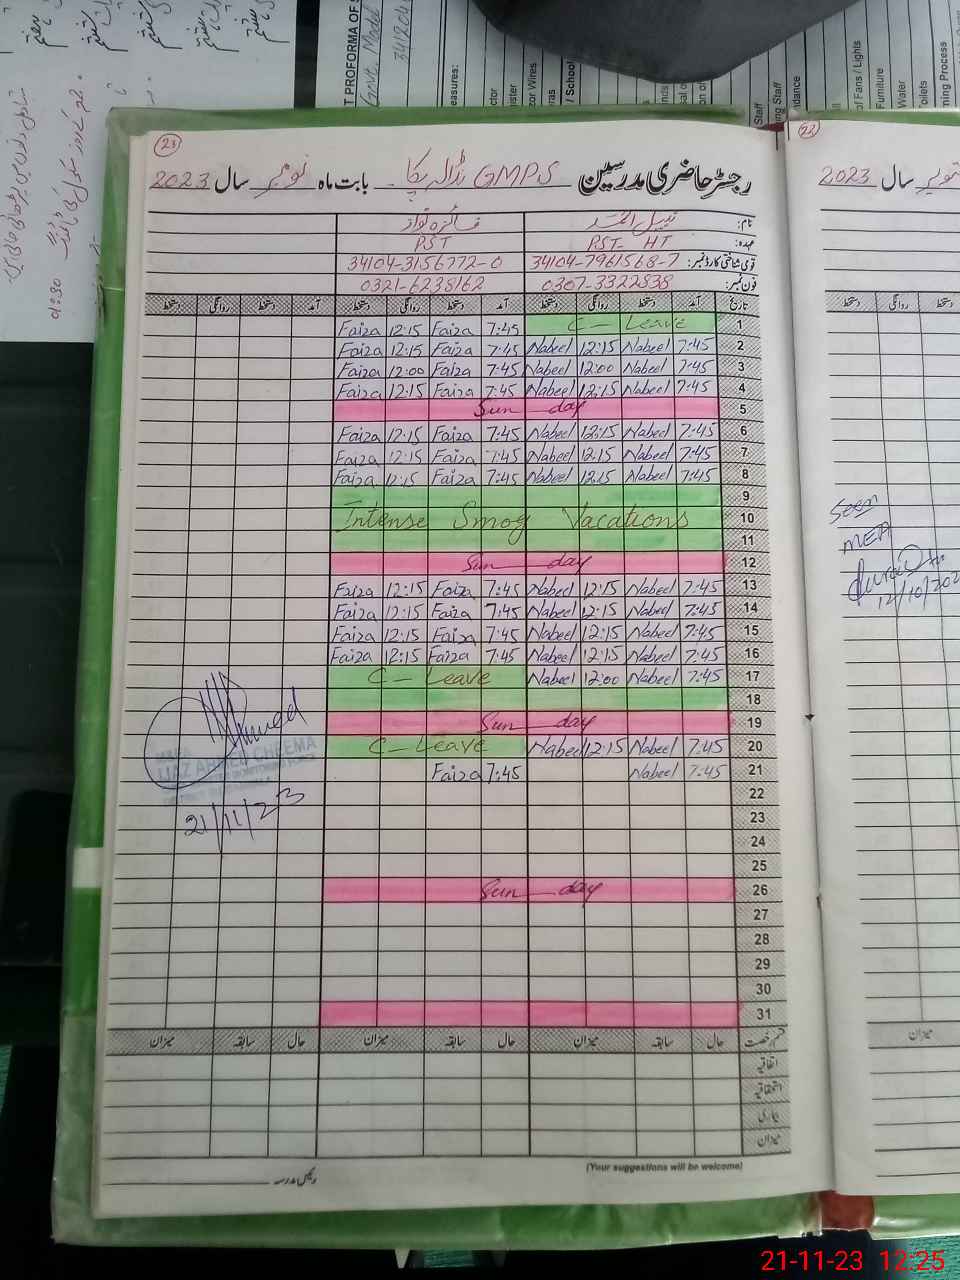 23
رجسٹر حاضری مدرسین GMPS نڈالہ پکا بابت ماہ نومبر سال 2023
نام: نبیل احمد فائزہ نواز
عہدہ: PST- HT PST
قومی شناختی کارڈ نمبر: 34104-7961568-7 34104-3156772-0
فون نمبر: 0307-3322838 0321-6238162
تاریخ آمد دستخط روانگی دستخط آمد دستخط روانگی دستخط آمد دستخط روانگی دستخط
Faiza 12:15 Faiza 7:45 C - Leave 1
Faiza 12:15 Faiza 7:45 Nabeel 12:15 Nabeel 7:45 2
Faiza 12:00 Faiza 7:45 Nabeel 12:00 Nabeel 7:45 3
Faiza 12:15 Faiza 7:45 Nabeel 12:15 Nabeel 7:45 4
Sun day 5
Faiza 12:15 Faiza 7:45 Nabeel 12:15 Nabeel 7:45 6
Faiza 12:15 Faiza 7:45 Nabeel 12:15 Nabeel 7:45 7
Faiza 12:15 Faiza 7:45 Nabeel 12:15 Nabeel 7:45 8
9
Intense Smog Vacations 10
11
Sun day 12
Faiza 12:15 Faiza 7:45 Nabeel 12:15 Nabeel 7:45 13
Faiza 12:15 Faiza 7:45 Nabeel 12:15 Nabeel 7:45 14
Faiza 12:15 Faiza 7:45 Nabeel 12:15 Nabeel 7:45 15
Faiza 12:15 Faiza 7:45 Nabeel 12:15 Nabeel 7:45 16
C - Leave Nabeel 12:00 Nabeel 7:45 17
18
Sun day 19
C - Leave Nabeel 12:15 Nabeel 7:45 20
Faiza 7:45 Nabeel 7:45 21
22
23
24
25
Sun day 26
27
28
29
30
31
قسم رخصت حال سابقہ میزان حال سابقہ میزان حال سابقہ میزان
اتفاقیہ
استحقاقیہ
بیماری
میزان
(Your suggestions will be welcome)
رئیس مدرسہ
Ahmed
IJAZ AHMED CHEEMA
21/11/23
22
سال 2023
دستخط روانگی دستخط
Seen
MEA
12/10/202
میزان
T PROFORMA OF S
Govt. Model
easures:
zor Wires
/ School
Staff
ing Staff
idance
of Fans / Lights
Furniture
Water
oilets
ming Process
9:30
21-11-23 12:25